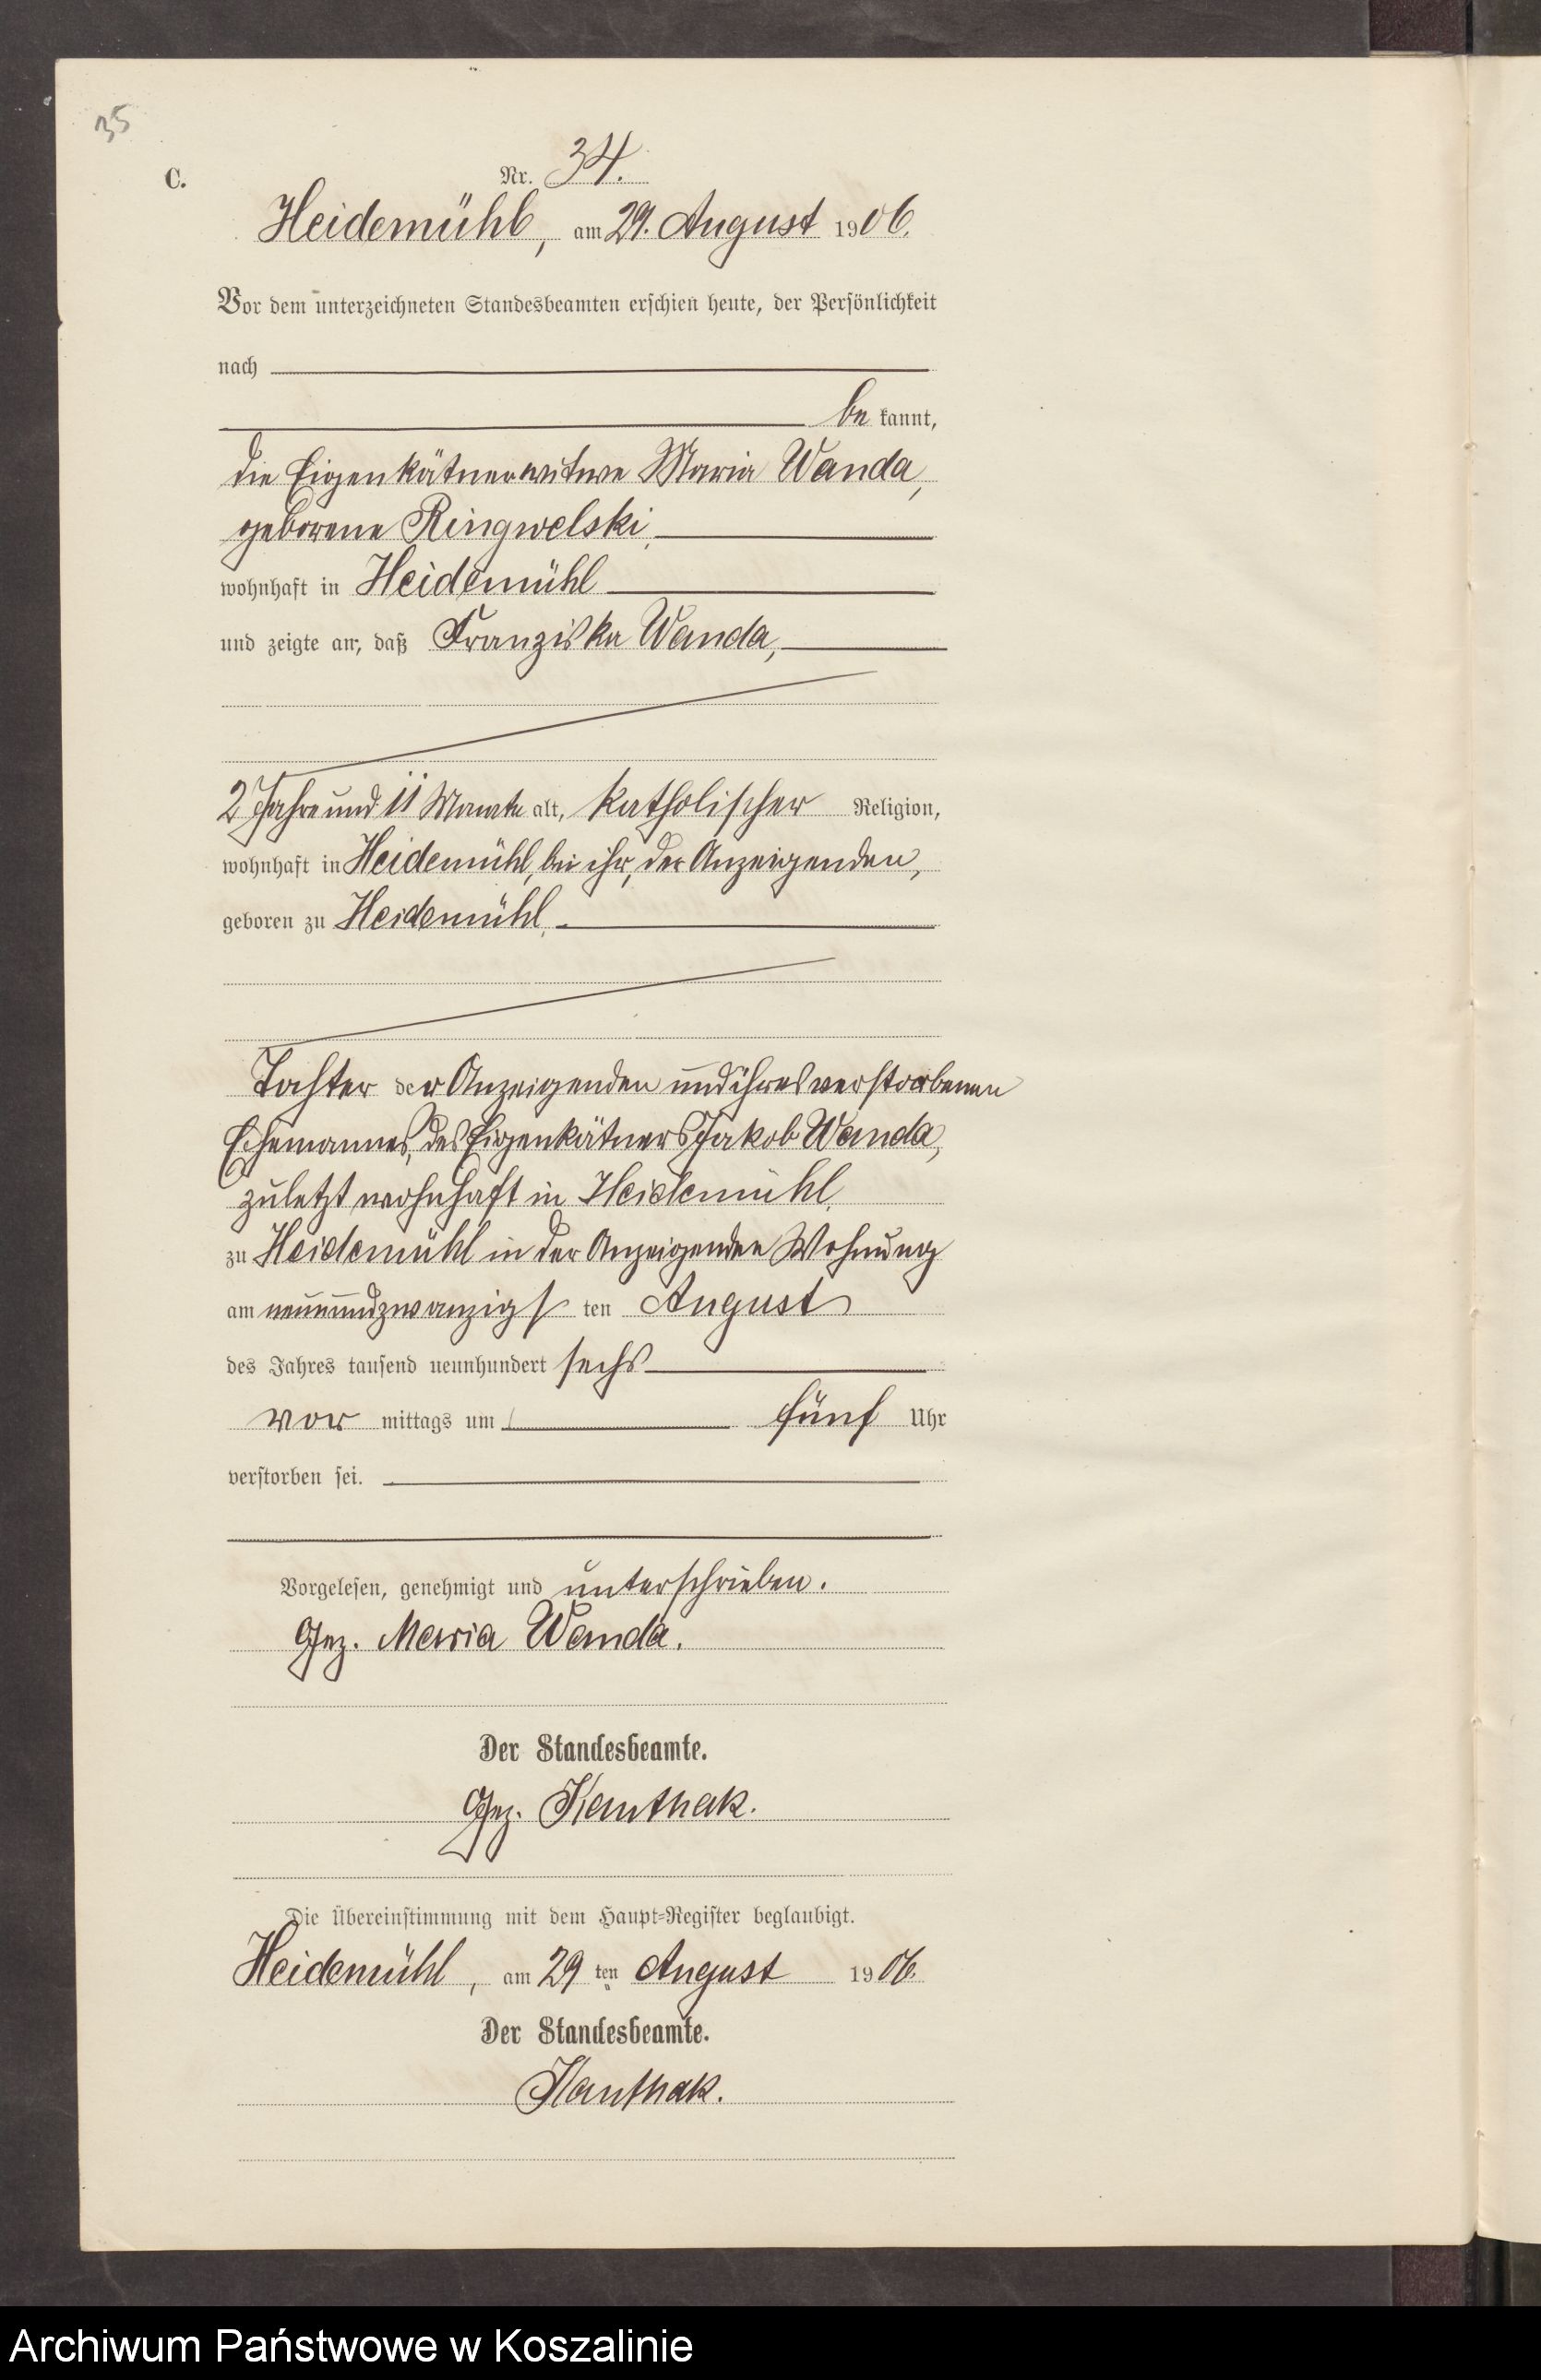 35
C.
Nr. 34.
Heidemühl, am 29. August 1906.
Vor dem unterzeichneten Standesbeamten erschien heute, der Persönlichkeit
nach
be kannt,
die Eigenkätnerwitwe Maria Wanda,
geborene Ringwelski,
wohnhaft in Heidemühl
und zeigte an, daß Franziska Wanda,
2 Jahre und 11 Monate alt, katholischer Religion,
wohnhaft in Heidemühl, bei ihr, der Anzeigenden,
geboren zu Heidemühl,
Tochter der Anzeigenden und ihres verstorbenen
Ehemannes, des Eigenkätners Jakob Wanda,
zuletzt wohnhaft in Heidemühl,
zu Heidemühl in der Anzeigenden Wohnung
am neunundzwanzigs ten August
des Jahres tausend neunhundert sechs
vor mittags um fünf Uhr
verstorben sei.
Vorgelesen, genehmigt und unterschrieben.
Gez. Maria Wanda.
Der Standesbeamte.
Gez. Kanthak.
Die Übereinstimmung mit dem Haupt-Register beglaubigt.
Heidemühl, am 29 ten August 1906.
Der Standesbeamte.
Kanthak.
Archiwum Państwowe w Koszalinie